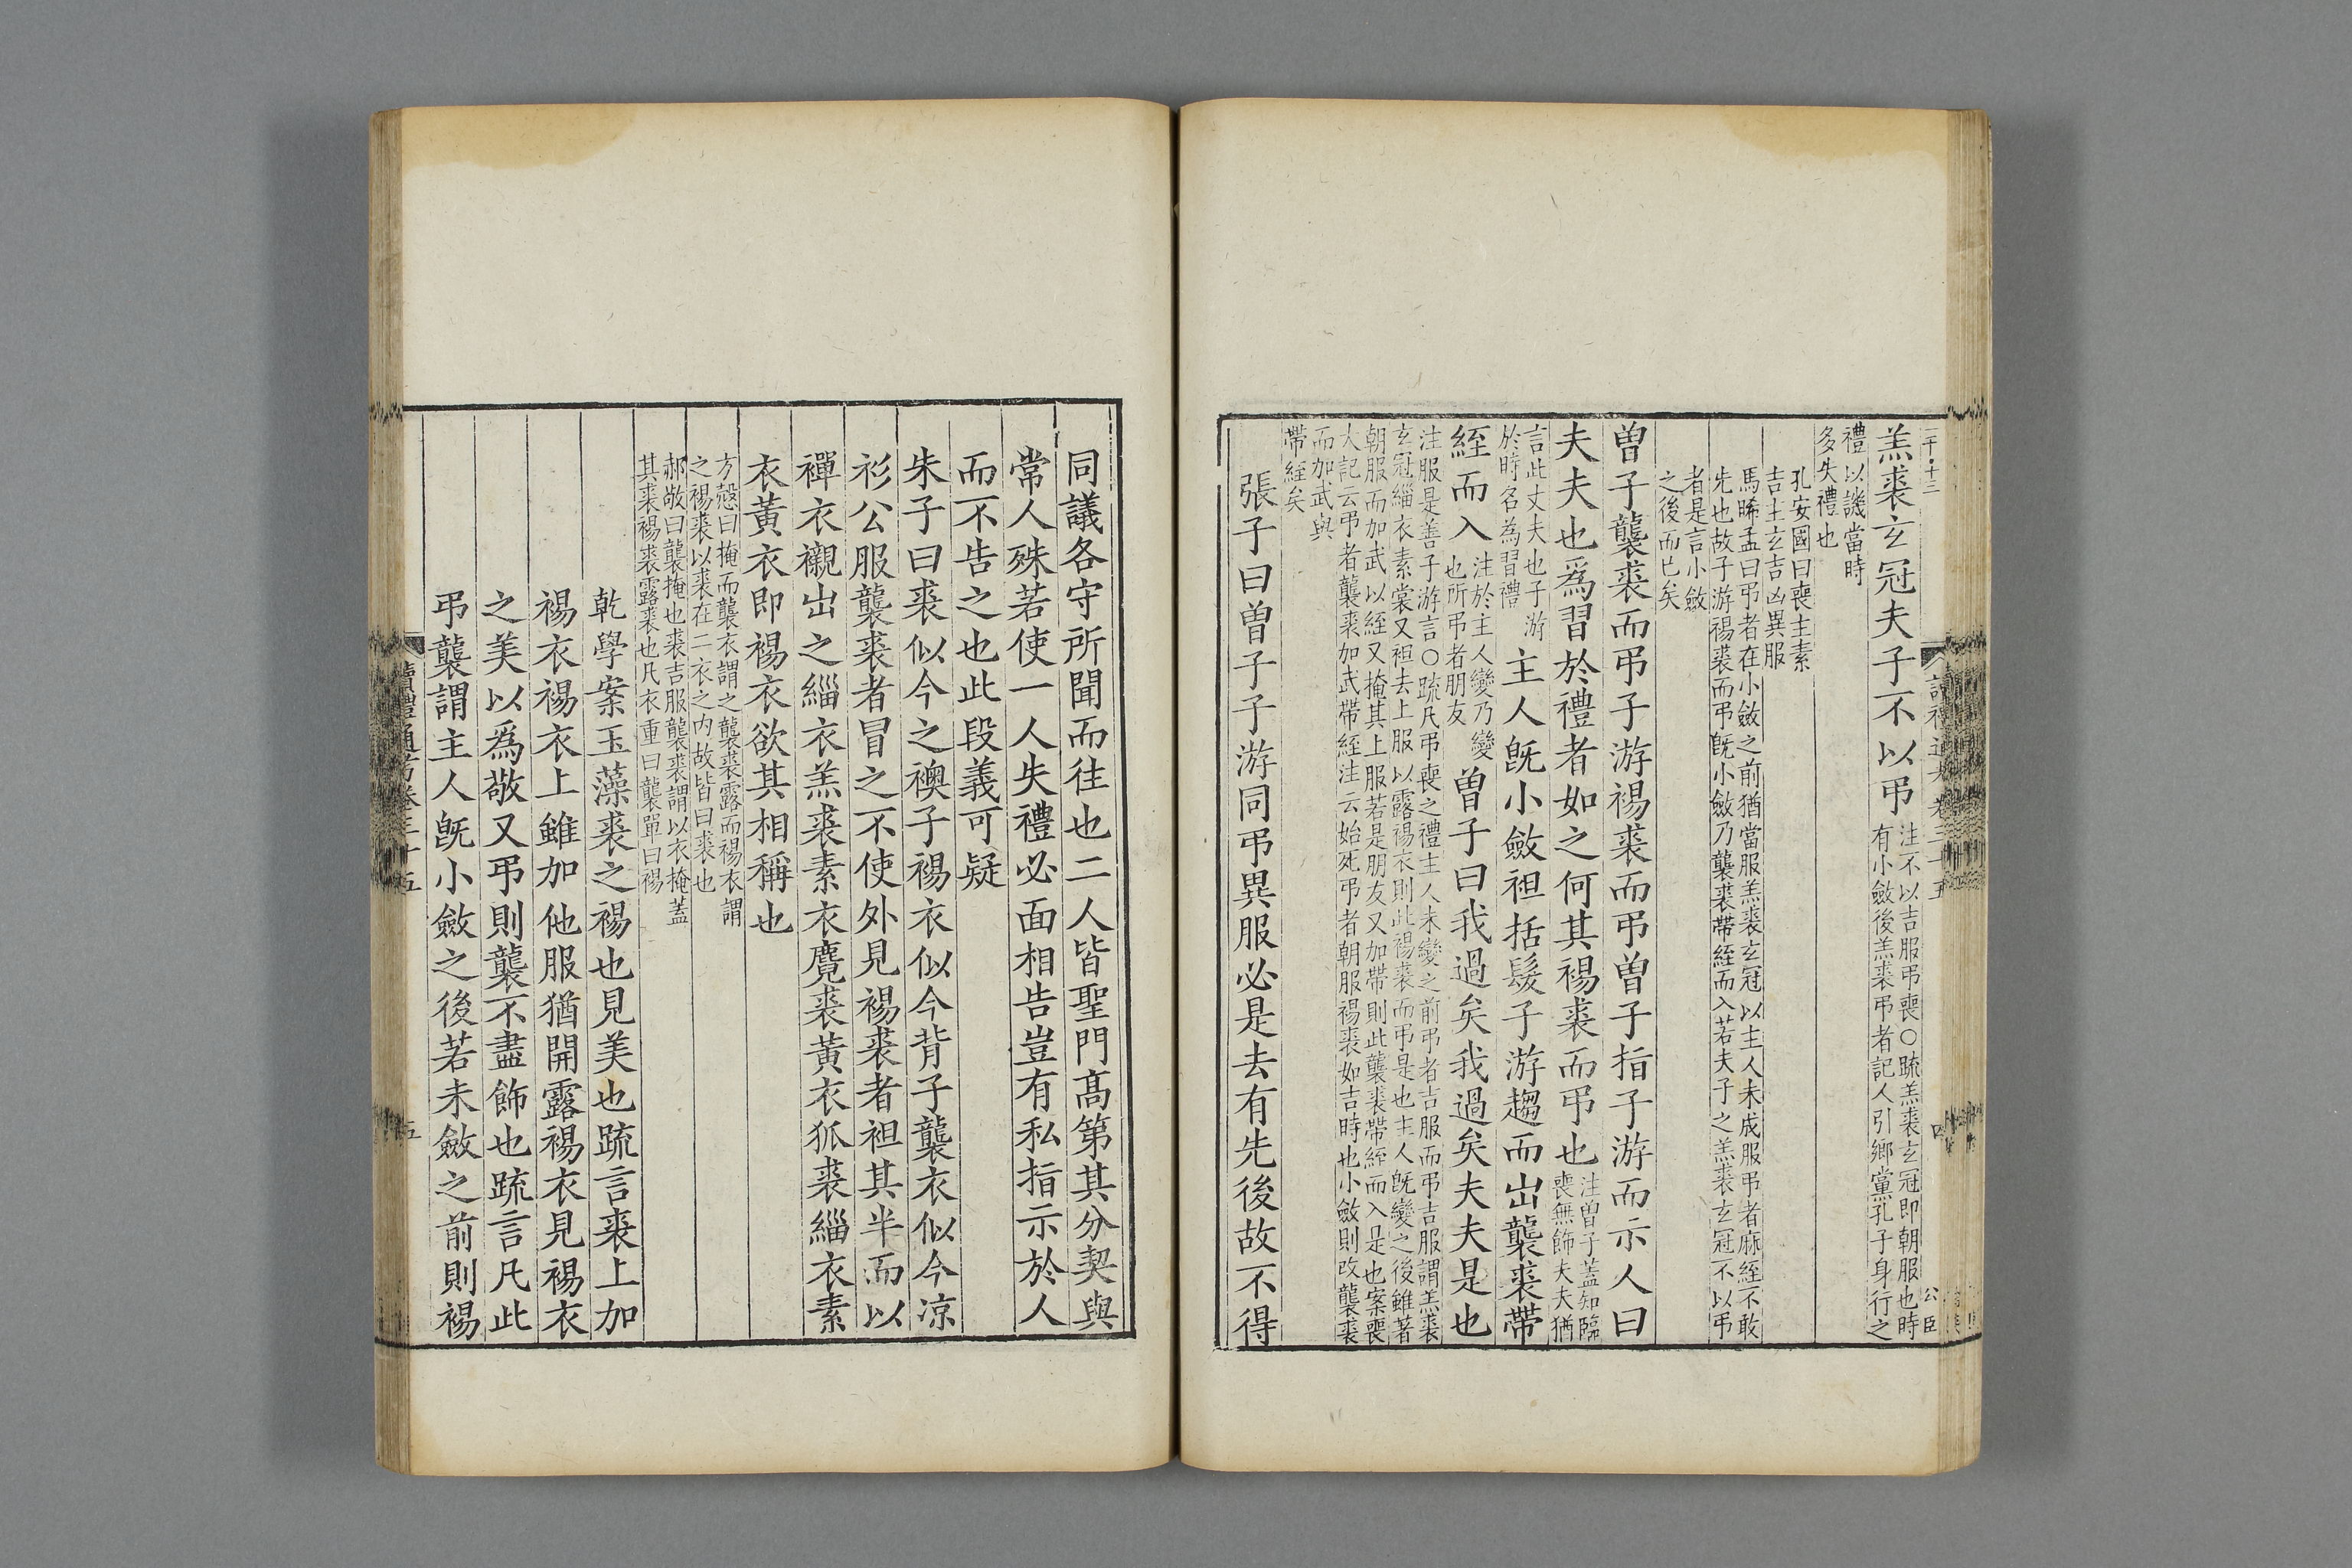 羔裘玄冠夫子不以弔
注不以吉服弔喪○疏羔裘玄冠即朝服也時
有小斂後羔裘弔者記人引鄉黨孔子身行之
禮以譏當時
多失禮也
孔安國曰喪主素
吉主玄吉凶異服
馬晞孟曰弔者在小斂之前猶當服羔裘玄冠以主人未成服弔者麻絰不敢
先也故子游裼裘而弔旣小斂乃襲裘帶絰而入若夫子之羔裘玄冠不以弔
者是言小斂
之後而已矣
曾子襲裘而弔子游裼裘而弔曾子指子游而示人曰
夫夫也爲習於禮者如之何其裼裘而弔也
注曾子蓋知臨
喪無飾夫夫猶
言此丈夫也子游
於時名為習禮
主人旣小斂袒括髮子游趨而出襲裘帶
絰而入
注於主人變乃變
也所弔者朋友
曾子曰我過矣我過矣夫夫是也
注服是善子游言○疏凡弔喪之禮主人未變之前弔者吉服而弔吉服謂羔裘
玄冠緇衣素裳又袒去上服以露裼衣則此裼裘而弔是也主人旣變之後雖著
朝服而加武以絰又掩其上服若是朋友又加帶則此襲裘帶絰而入是也案喪
大記云弔者襲裘加武帶絰注云始死弔者朝服裼裘如吉時也小斂則改襲裘
而加武與
帶絰矣
張子曰曾子子游同弔異服必是去有先後故不得
同議各守所聞而往也二人皆聖門高第其分契與
常人殊若使一人失禮必面相告豈有私指示於人
而不告之也此段義可疑
朱子曰裘似今之襖子裼衣似今背子襲衣似今涼
衫公服襲裘者冒之不使外見裼裘者袒其半而以
襌衣襯出之緇衣羔裘素衣麑裘黃衣狐裘緇衣素
衣黃衣即裼衣欲其相稱也
方慤曰掩而襲衣謂之襲裘露而裼衣謂
之裼裘以裘在二衣之内故皆曰裘也
郝敬曰襲掩也裘吉服襲裘謂以衣掩蓋
其裘裼裘露裘也凡衣重曰襲單曰裼
乾學案玉藻裘之裼也見美也疏言裘上加
裼衣裼衣上雖加他服猶開露裼衣見裼衣
之美以爲敬又弔則襲不盡飾也疏言凡此
弔襲謂主人旣小斂之後若未斂之前則裼
讀禮通考卷三十五
五